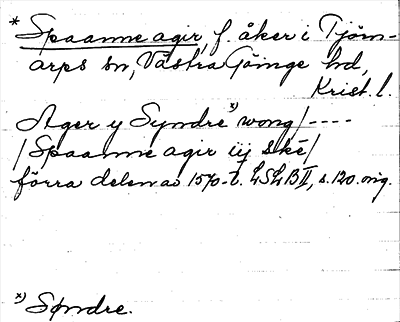 * Spaanne agir, f. åker i Tjörn-
arps sn, Västra Göinge hd,
Krist. l.
Ager y Syndre x) wong/----
/Spaanne agir iij ské/
förra delen av 1570-t. LSLB II, s. 120. orig.
x) Søndre.